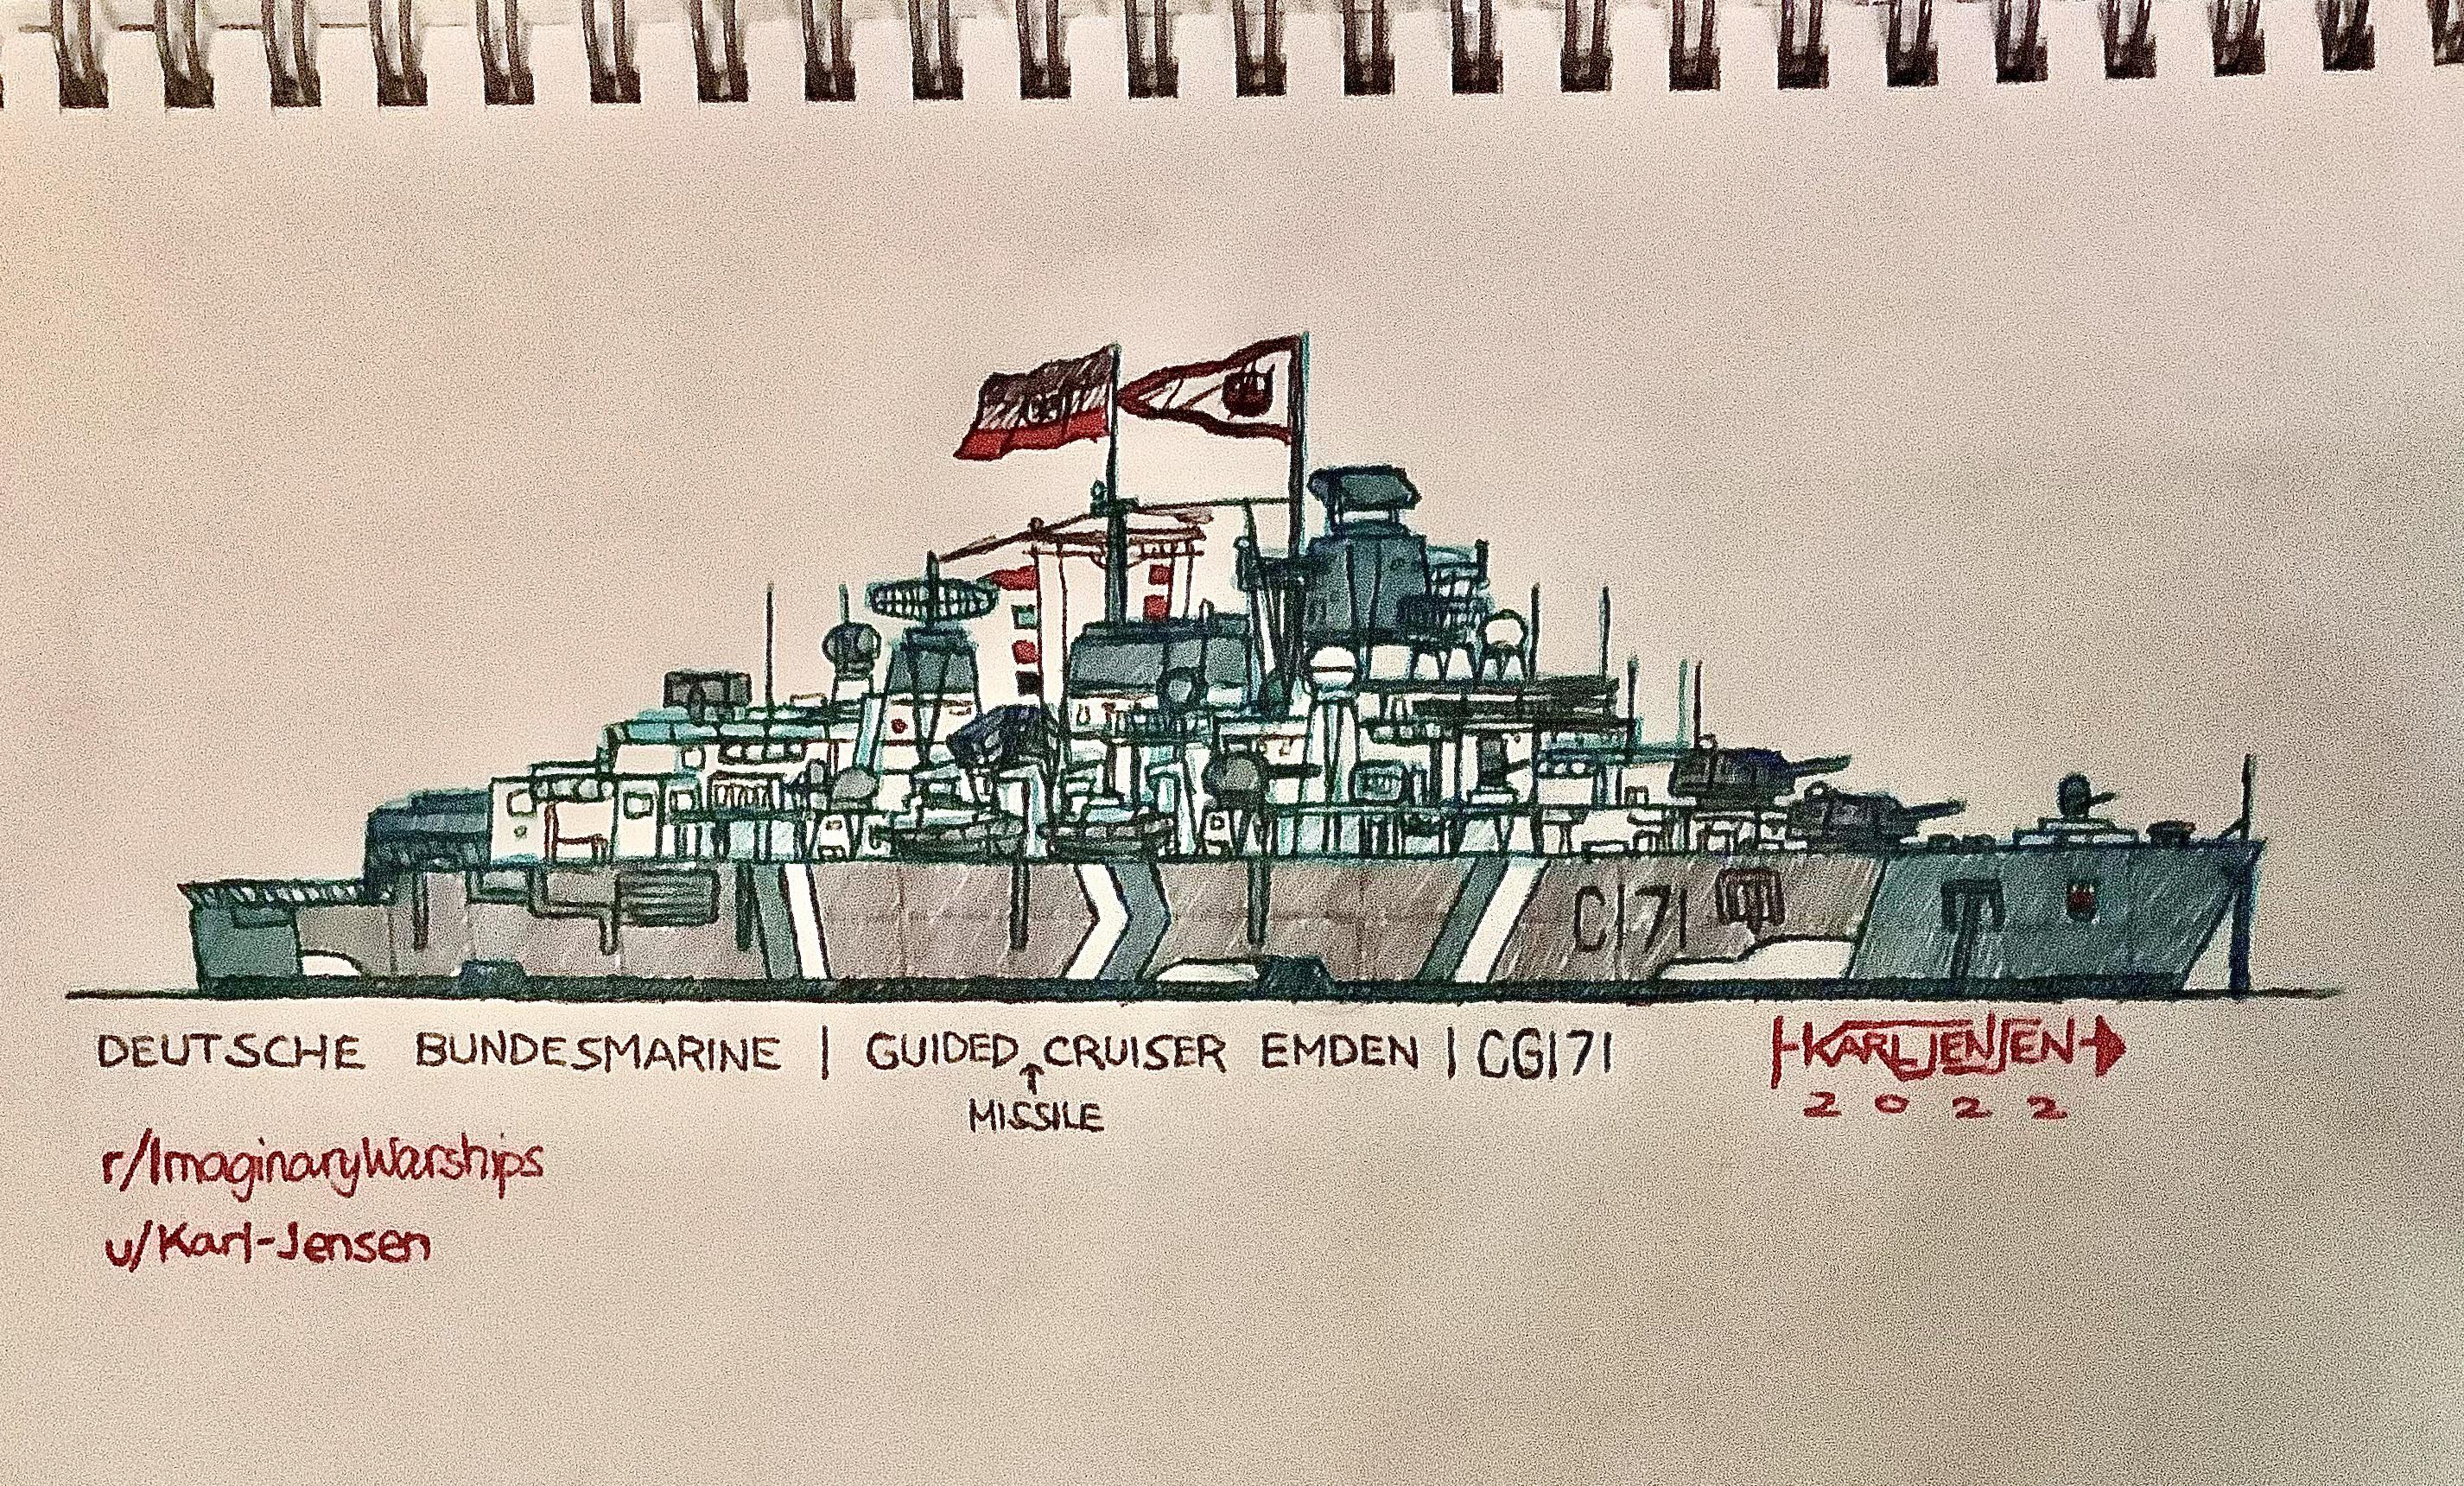 C171
DEUTSCHE BUNDESMARINE | GUIDED CRUISER EMDEN | CG171
MISSILE
KARL JENSEN
2022
r/ImaginaryWarships
u/Karl-Jensen